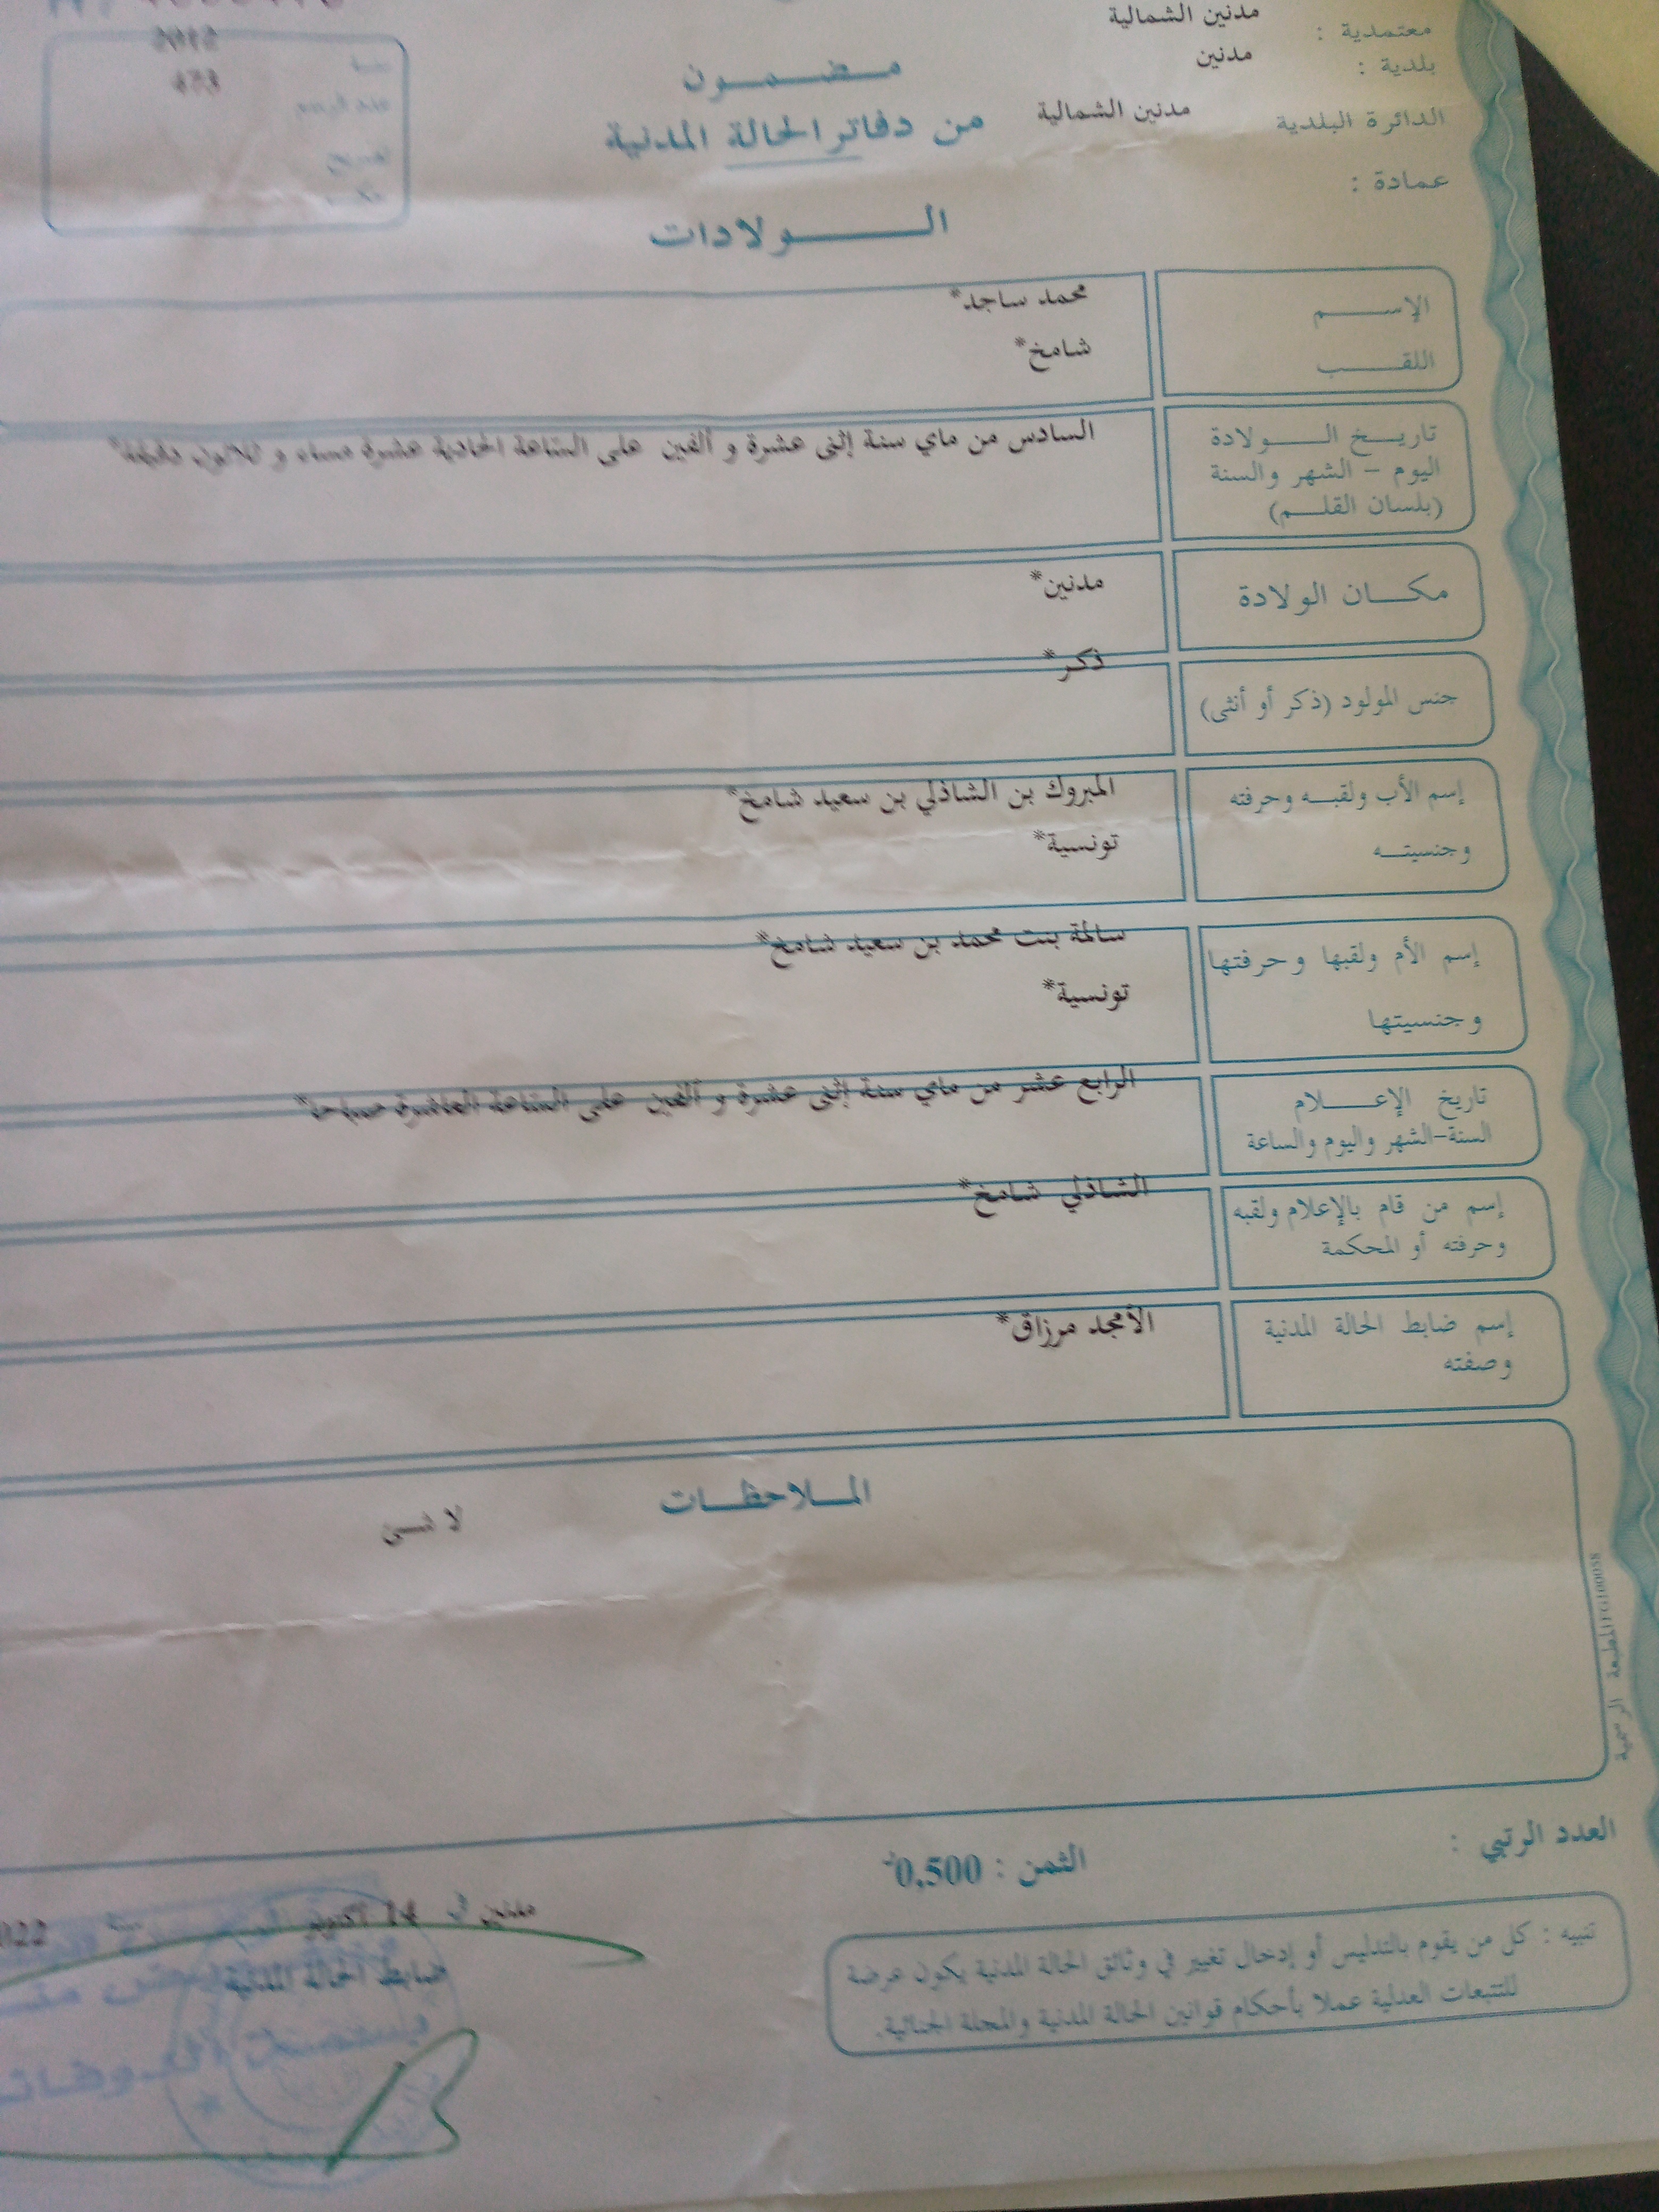 معتمدية : مدنين الشمالية
بلدية : مدنين
الدائرة البلدية مدنين الشمالية
عمادة :
مضمون
من دفاتر الحالة المدنية
الولادات
2012
473
عدد الرسم
الإسم محمد ساجد*
اللقب شامخ*
تاريخ الولادة السادس من ماي سنة إثنى عشرة و ألفين على الساعة الحادية عشرة مساء و ثلاثون دقيقة*
اليوم - الشهر والسنة
(بلسان القلم)
مكان الولادة مدنين*
جنس المولود (ذكر أو أنثى) ذكر*
إسم الأب ولقبه وحرفته المبروك بن الشاذلي بن سعيد شامخ*
وجنسيته تونسية*
إسم الأم ولقبها وحرفتها سالمة بنت محمد بن سعيد شامخ*
وجنسيتها تونسية*
تاريخ الإعلام الرابع عشر من ماي سنة إثنى عشرة و ألفين على الساعة العاشرة صباحا*
السنة-الشهر واليوم والساعة
إسم من قام بالإعلام ولقبه الشاذلي شامخ*
وحرفته أو المحكمة
إسم ضابط الحالة المدنية الأمجد مرزاق*
وصفته
الملاحظات
لا شئ
المطبعة الرسمية
العدد الرتبي :
الثمن : 0,500د
مدنين في 14 أكتوبر سنة 022
ضابط الحالة المدنية
تنبيه : كل من يقوم بالتدليس أو إدخال تغيير في وثائق الحالة المدنية يكون عرضة
للتتبعات العدلية عملا بأحكام قوانين الحالة المدنية والمجلة الجنائية.